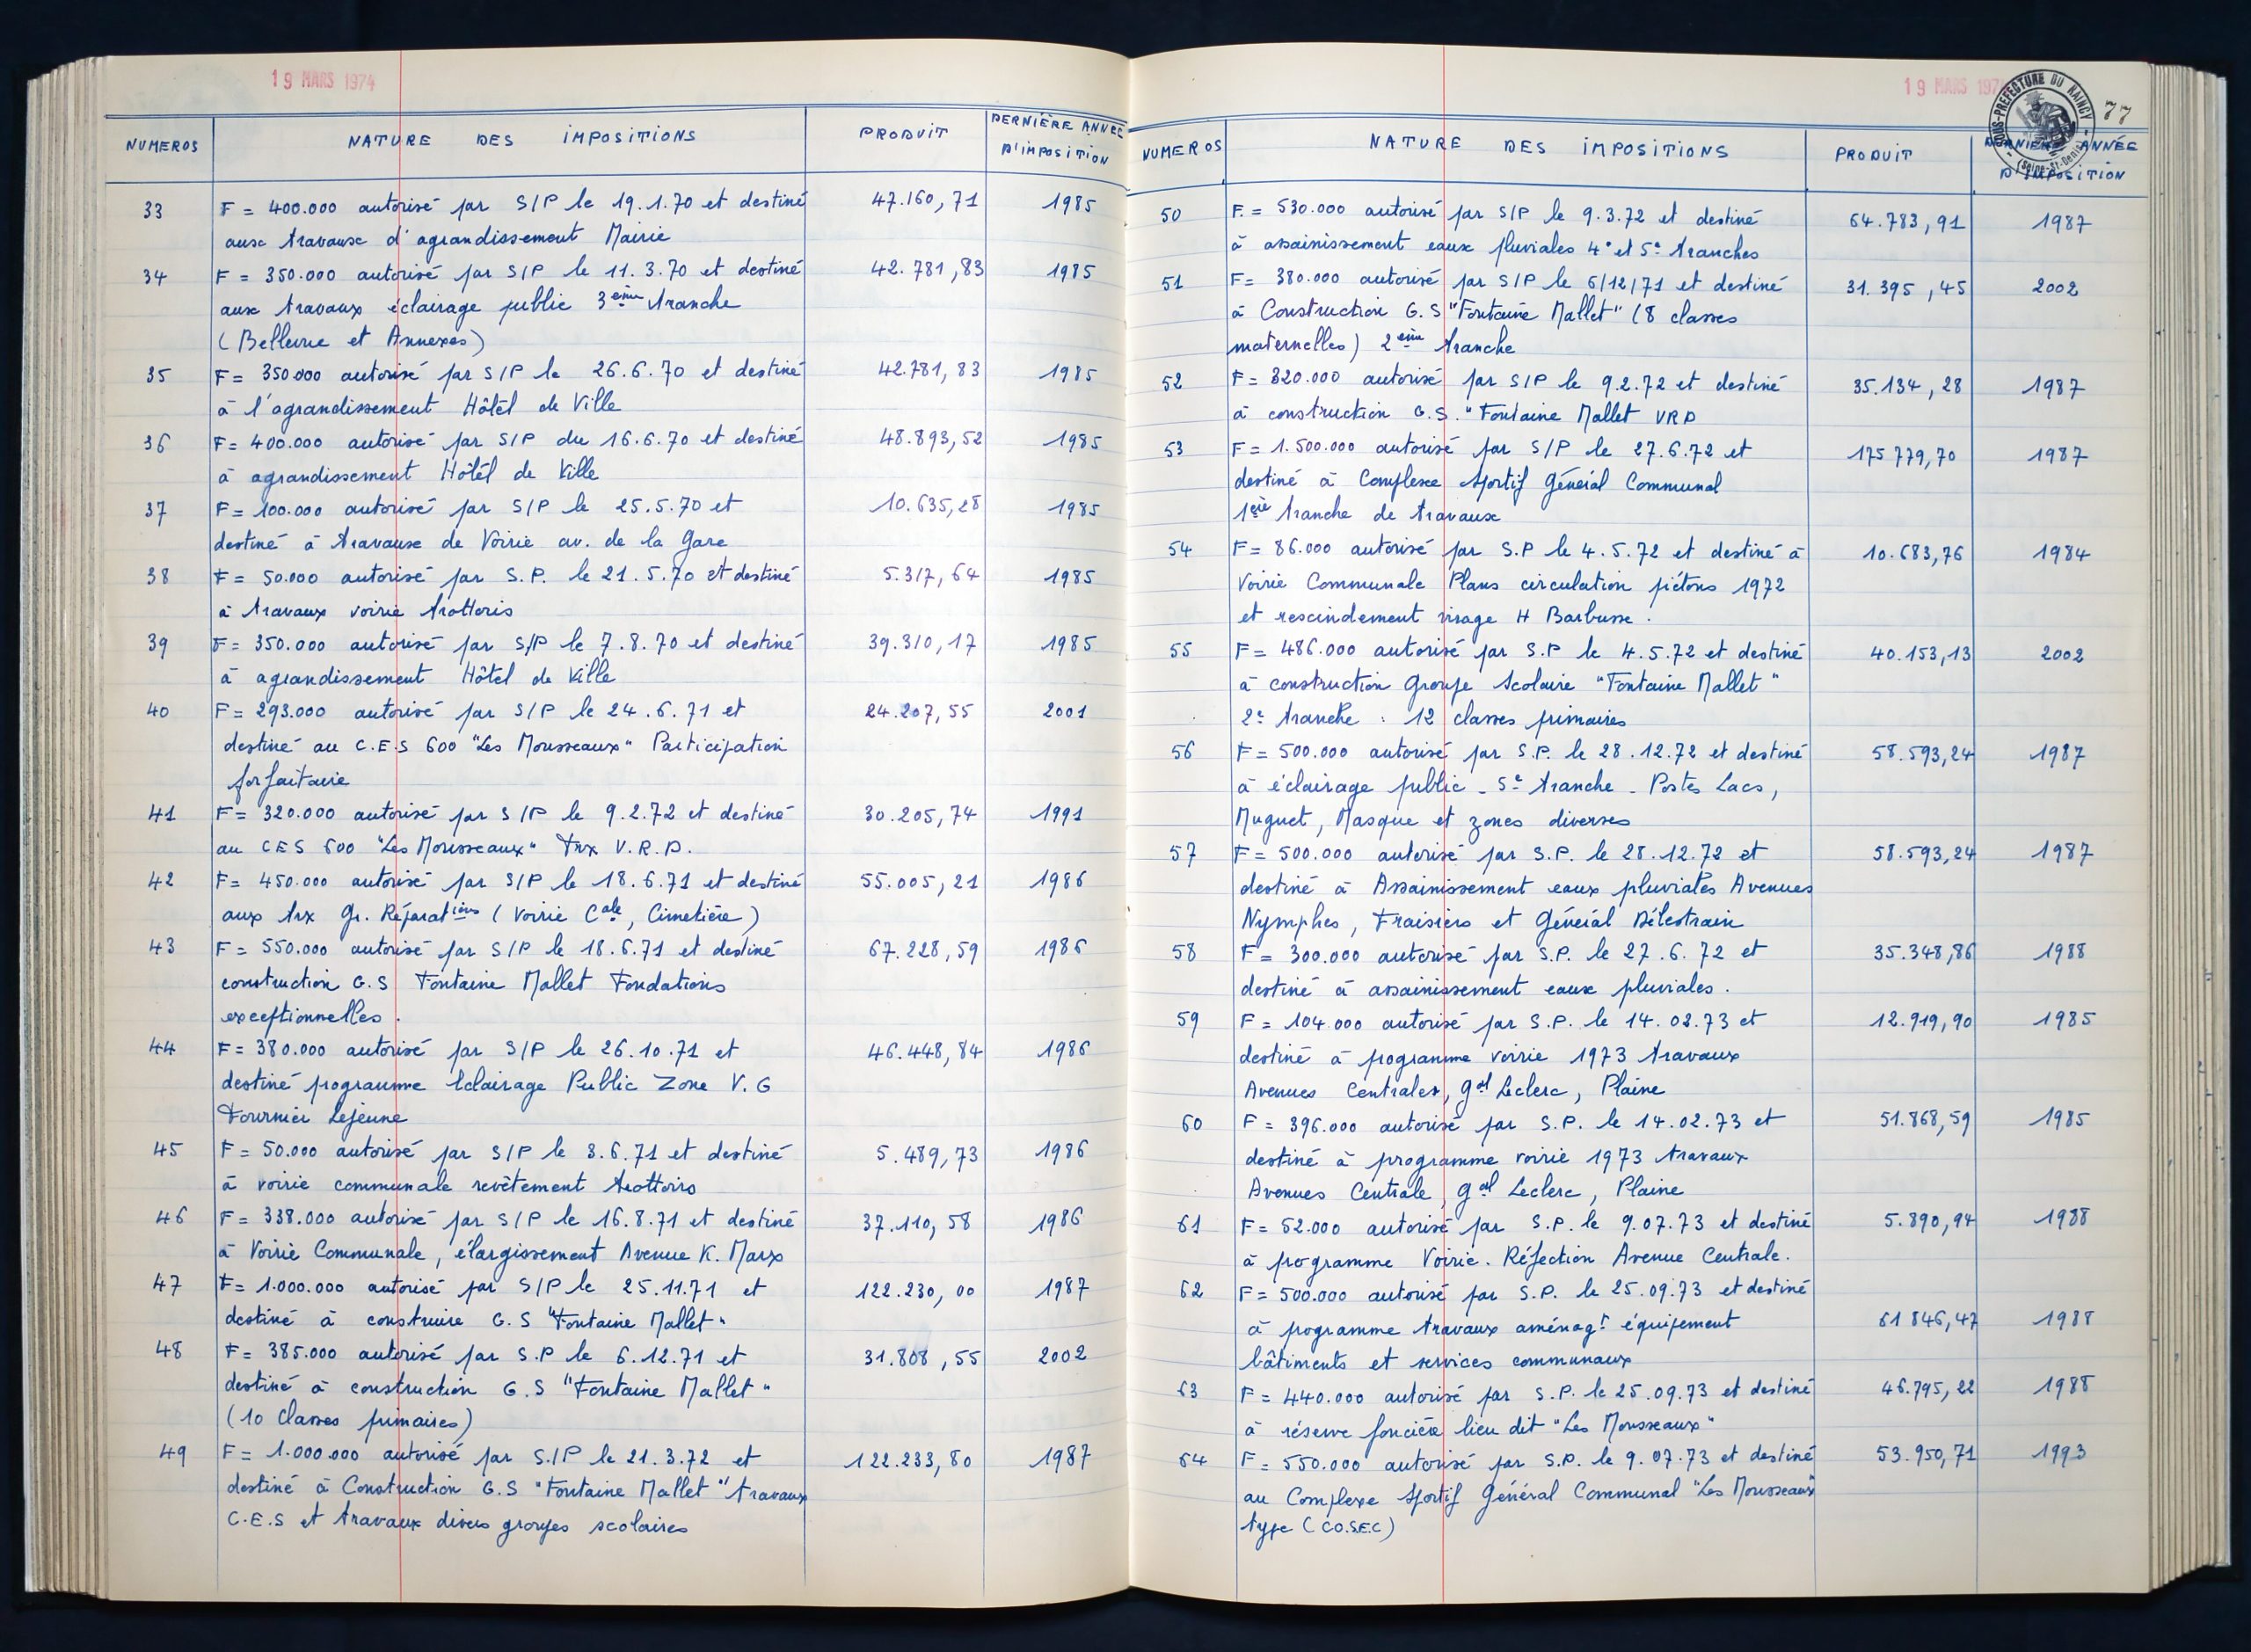 19 MARS 1974
NUMEROS NATURE DES IMPOSITIONS PRODUIT DERNIÈRE ANNEE D'IMPOSITION
33 F = 400.000 autorisé par S/P le 19.1.70 et destiné 47.160,71 1985
aux travaux d'agrandissement Mairie
34 F = 350.000 autorisé par S/P le 11.3.70 et destiné 42.781,83 1985
aux travaux éclairage public 3ème tranche
(Bellevue et Annexes)
35 F = 350000 autorisé par S/P le 26.6.70 et destiné 42.781,83 1985
à l'agrandissement Hôtel de Ville
36 F = 400.000 autorisé par S/P du 16.6.70 et destiné 48.893,52 1985
à agrandissement Hôtel de Ville
37 F = 100.000 autorisé par S/P le 25.5.70 et 10.635,28 1985
destiné à travaux de Voirie av. de la Gare
38 F = 50.000 autorisé par S.P. le 21.5.70 et destiné 5.317,64 1985
à travaux voirie trottoirs
39 F = 350.000 autorisé par S/P le 7.8.70 et destiné 39.310,17 1985
à agrandissement Hôtel de Ville
40 F = 293.000 autorisé par S/P le 24.6.71 et 24.207,55 2001
destiné au C.E.S 600 "Les Mousseaux" Participation
forfaitaire
41 F = 320.000 autorisé par S/P le 9.2.72 et destiné 30.205,74 1991
au CES 600 "Les Mousseaux" Trx V.R.D.
42 F = 450.000 autorisé par S/P le 18.6.71 et destiné 55.005,21 1986
aux trx Gr. Réparations (Voirie Cale, Cimetière)
43 F = 550.000 autorisé par S/P le 18.6.71 et destiné 67.228,59 1986
construction G.S Fontaine Mallet Fondations
exceptionnelles.
44 F = 380.000 autorisé par S/P le 26.10.71 et 46.448,84 1986
destiné programme Eclairage Public Zone V.G
Fournier Lejeune
45 F = 50.000 autorisé par S/P le 3.6.71 et destiné 5.489,73 1986
à voirie communale revêtement trottoirs
46 F = 338.000 autorisé par S/P le 16.8.71 et destiné 37.110,58 1986
à Voirie Communale, élargissement Avenue K. Marx
47 F = 1.000.000 autorisé par S/P le 25.11.71 et 122.230,00 1987
destiné à construire G.S "Fontaine Mallet"
48 F = 385.000 autorisé par S.P le 6.12.71 et 31.808,55 2002
destiné à construction G.S "Fontaine Mallet"
(10 classes primaires)
49 F = 1.000.000 autorisé par S/P le 21.3.72 et 122.233,80 1987
destiné à Construction G.S "Fontaine Mallet" travaux
C.E.S et travaux divers groupes scolaires
19 MARS 197
SOUS-PREFECTURE DU RAINCY (Seine-St-Denis)
77
NUMEROS NATURE DES IMPOSITIONS PRODUIT DERNIERE ANNÉE D'IMPOSITION
50 F. = 530.000 autorisé par S/P le 9.3.72 et destiné 64.783,91 1987
à assainissement eaux pluviales 4e et 5e tranches
51 F = 380.000 autorisé par S/P le 6/12/71 et destiné 31.395,45 2002
à Construction G.S "Fontaine Mallet" (8 classes
maternelles) 2ème tranche
52 F = 320.000 autorisé par S/P le 9.2.72 et destiné 35.134,28 1987
à construction G.S. "Fontaine Mallet VRD
53 F = 1.500.000 autorisé par S/P le 27.6.72 et 175 779,70 1987
destiné à Complexe Sportif Général Communal
1ère tranche de travaux
54 F = 86.000 autorisé par S.P le 4.5.72 et destiné à 10.683,76 1984
Voirie Communale Plans circulation piétons 1972
et rescindement virage H Barbusse.
55 F = 486.000 autorisé par S.P le 4.5.72 et destiné 40.153,13 2002
à construction Groupe Scolaire "Fontaine Mallet"
2e tranche : 12 classes primaires
56 F = 500.000 autorisé par S.P. le 28.12.72 et destiné 58.593,24 1987
à éclairage public - 5e tranche - Postes Lacs,
Muguet, Masque et zones diverses
57 F = 500.000 autorisé par S.P. le 28.12.72 et 58.593,24 1987
destiné à Assainissement eaux pluviales Avenues
Nymphes, Fraisiers et Général Délestrain
58 F = 300.000 autorisé par S.P. le 27.6.72 et 35.348,86 1988
destiné à assainissement eaux pluviales.
59 F = 104.000 autorisé par S.P. le 14.02.73 et 12.919,90 1985
destiné à programme voirie 1973 travaux
Avenues Centrales, Gal Leclerc, Plaine
60 F = 396.000 autorisé par S.P. le 14.02.73 et 51.868,59 1985
destiné à programme voirie 1973 travaux
Avenues Centrale, Gal Leclerc, Plaine
61 F = 52.000 autorisé par S.P. le 9.07.73 et destiné 5.890,94 1988
à programme Voirie. Réfection Avenue Centrale.
62 F = 500.000 autorisé par S.P. le 25.09.73 et destiné
à programme travaux aménagt équipement 61 846,47 1988
bâtiments et services communaux
63 F = 440.000 autorisé par S.P. le 25.09.73 et destiné 46.795,22 1988
à réserve foncière lieu dit "Les Mousseaux"
64 F = 550.000 autorisé par S.P. le 9.07.73 et destiné 53.950,71 1993
au Complexe Sportif Général Communal "Les Mousseaux"
type (CO.S.E.C)